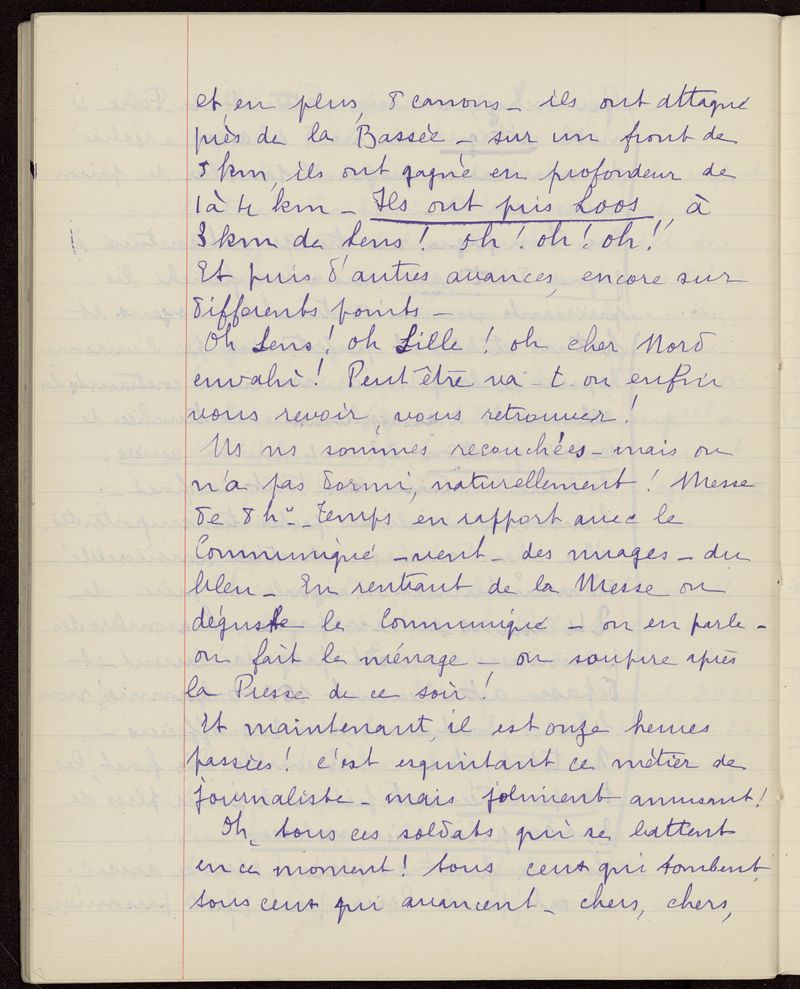 et, en plus, 8 canons – ils ont attaqué
près de la Bassée – sur un front de
8 km, ils ont gagné en profondeur de
1 à 4 km – Ils ont pris Loos, à
3 km de Lens ! oh ! oh ! oh !
Et puis d'autres avances, encore sur
différents points –
Oh Lens ! oh Lille ! oh cher Nord
envahi ! Peut être va-t-on enfin
vous revoir, vous retrouver !
Ns ns sommes recouchées – mais on
n'a pas dormi, naturellement ! Messe
de 8h" – Temps en rapport avec le
Communiqué – vent – des nuages – du
bleu – En rentrant de la Messe on
déguste le Communiqué – on en parle –
on fait le ménage – on soupire après
la Presse de ce soir !
Et maintenant, il est onze heures
passées ! c'est esquintant ce métier de
journaliste – mais joliment amusant !
Oh, tous ces soldats qui se battent
en ce moment ! tous ceux qui tombent,
tous ceux qui avancent – chers, chers,